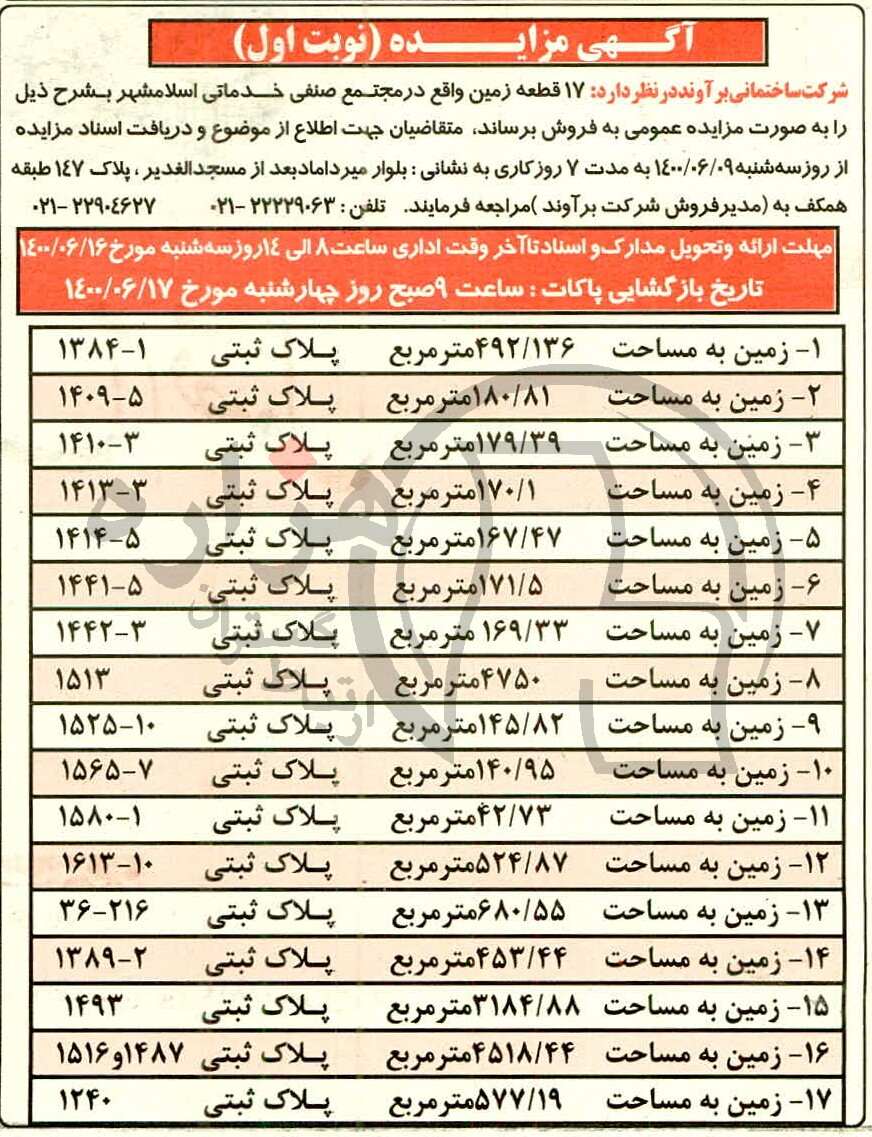 آگهی مزایده (نوبت اول)
شرکت ساختمانی برآوند در نظر دارد: ۱۷ قطعه زمین واقع در مجتمع صنفی خدماتی اسلامشهر بشرح ذیل
را به صورت مزایده عمومی به فروش برساند، متقاضیان جهت اطلاع از موضوع و دریافت اسناد مزایده
از روز سه شنبه ۱۴۰۰/۰۶/۰۹ به مدت ۷ روز کاری به نشانی : بلوار میرداماد بعد از مسجدالغدیر ، پلاک ۱۴۷ طبقه
همکف به (مدیر فروش شرکت برآوند )مراجعه فرمایند. تلفن : ۲۲۲۲۹۰۶۳ -۰۲۱ ۲۲۹۰۴۶۲۷ -۰۲۱
مهلت ارائه وتحویل مدارک و اسناد تا آخر وقت اداری ساعت ۸ الی ۱۴ روز سه شنبه مورخ ۱۴۰۰/۰۶/۱۶
تاریخ بازگشایی پاکات : ساعت ۹ صبح روز چهارشنبه مورخ ۱۴۰۰/۰۶/۱۷
۱- زمین به مساحت ۴۹۲/۱۳۶مترمربع پلاک ثبتی ۱-۱۳۸۴
۲- زمین به مساحت ۱۸۰/۸۱مترمربع پلاک ثبتی ۵-۱۴۰۹
۳- زمین به مساحت ۱۷۹/۳۹مترمربع پلاک ثبتی ۳-۱۴۱۰
۴- زمین به مساحت ۱۷۰/۱مترمربع پلاک ثبتی ۳-۱۴۱۳
۵- زمین به مساحت ۱۶۷/۴۷مترمربع پلاک ثبتی ۵-۱۴۱۴
۶- زمین به مساحت ۱۷۱/۵مترمربع پلاک ثبتی ۵-۱۴۴۱
۷- زمین به مساحت ۱۶۹/۳۳ مترمربع پلاک ثبتی ۳-۱۴۴۲
۸- زمین به مساحت ۴۷۵۰مترمربع پلاک ثبتی ۱۵۱۳
۹- زمین به مساحت ۱۴۵/۸۲مترمربع پلاک ثبتی ۱۰-۱۵۲۵
۱۰- زمین به مساحت ۱۴۰/۹۵مترمربع پلاک ثبتی ۷-۱۵۶۵
۱۱- زمین به مساحت ۴۲/۷۳مترمربع پلاک ثبتی ۱-۱۵۸۰
۱۲- زمین به مساحت ۵۲۴/۸۷مترمربع پلاک ثبتی ۱۰-۱۶۱۳
۱۳- زمین به مساحت ۶۸۰/۵۵مترمربع پلاک ثبتی ۲۱۶-۳۶
۱۴- زمین به مساحت ۴۵۳/۴۴مترمربع پلاک ثبتی ۲-۱۳۸۹
۱۵- زمین به مساحت ۳۱۸۴/۸۸مترمربع پلاک ثبتی ۱۴۹۳
۱۶- زمین به مساحت ۴۵۱۸/۴۴مترمربع پلاک ثبتی ۱۴۸۷و۱۵۱۶
۱۷- زمین به مساحت ۵۷۷/۱۹مترمربع پلاک ثبتی ۱۲۴۰
هزاره